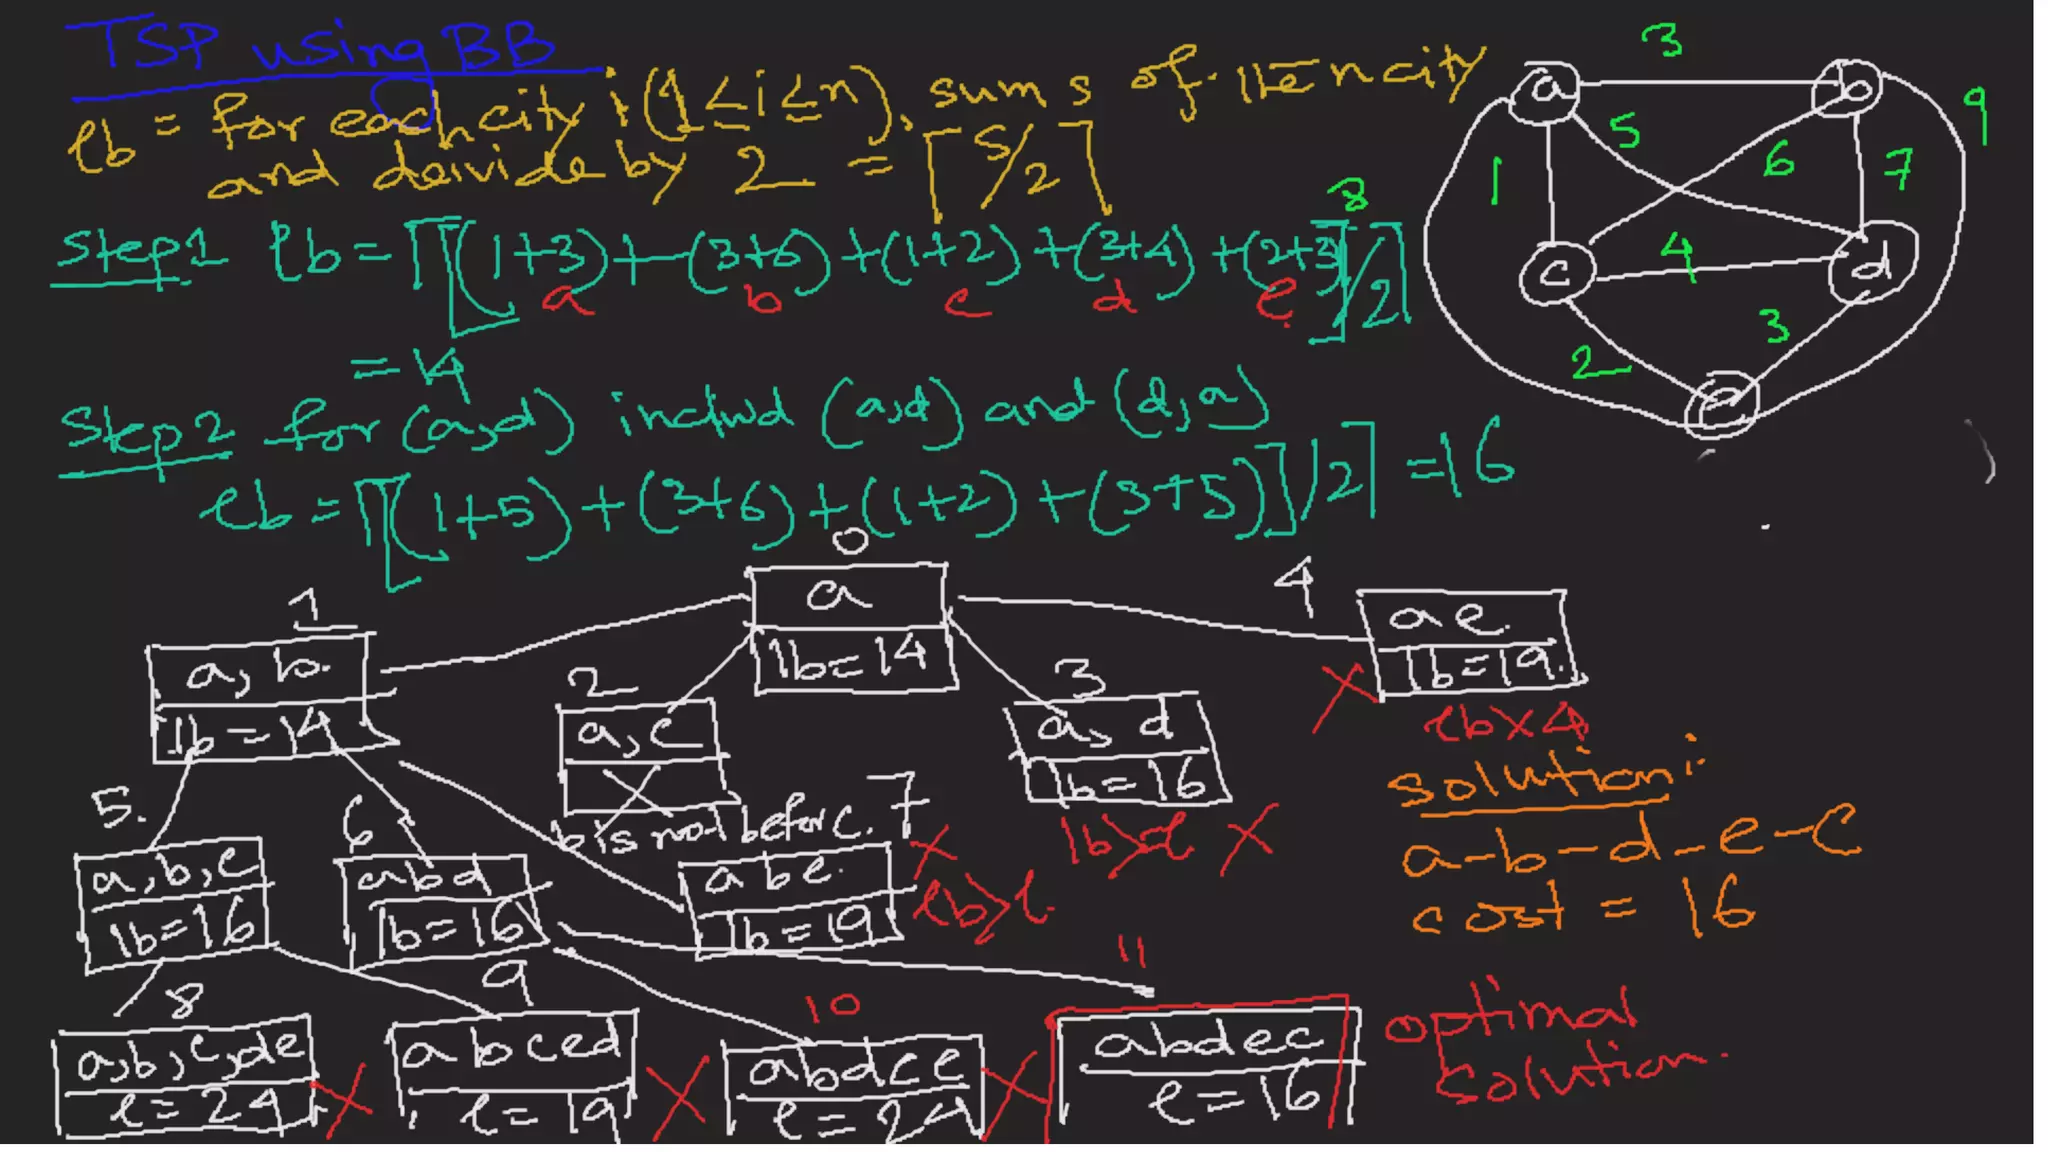 TSP using BB
lb = for each city i (1≤i≤n), sum s of the n city
and deivide by 2 = ⌈S/2⌉
Step1 lb = ⌈[(1+3)+(3+6)+(1+2)+(3+4)+(2+3)]/2⌉
a b c d e
= 14
Step2 for (a,d) includ (a,d) and (d,a)
lb = ⌈[(1+5)+(3+6)+(1+2)+(3+5)]/2⌉ = 16
3
a b
5 9
1 6 7
8
c 4 d
2 3
e
0
a
lb=14
1
a, b.
lb=14
2
a, c
b is not before c.
3
a, d
lb=16
lb>l X
4
a e.
lb=19.
X
lb X 4
5.
a, b, c
lb=16
6
abd
lb=16
7
abe.
lb=19
X
lb>l.
8
a, b, c, de
l=24
X
9
abced
l=19
X
10
abdce
l=24
X
11
abdec
l=16
optimal
solution.
solution:
a-b-d-e-c
cost = 16